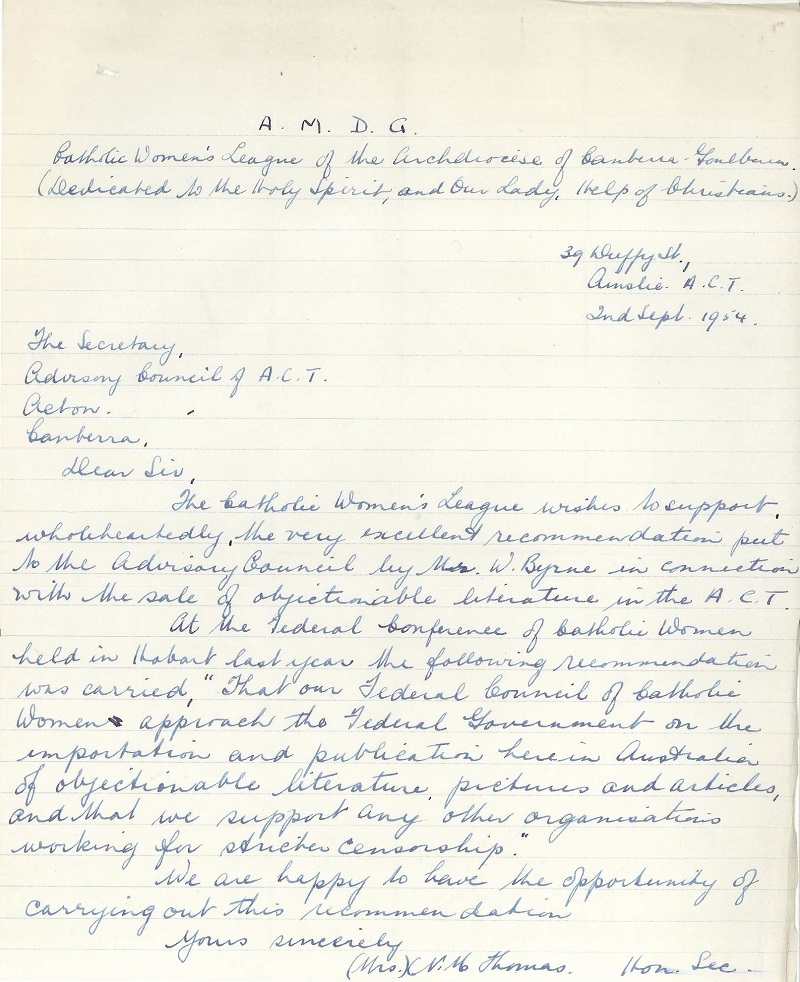 A. M. D. G.
Catholic Women's League of the Archdiocese of Canberra-Goulburn.
(Dedicated to the Holy Spirit, and Our Lady, Help of Christians.)
39 Duffy St.,
Ainslie. A.C.T.
2nd Sept. 1954.
The Secretary,
Advisory Council of A.C.T.
Acton.
Canberra.
Dear Sir,
The Catholic Women's League wishes to support,
wholeheartedly, the very excellent recommendation put
to the Advisory Council by Mr. W. Byrne in connection
with the sale of objectionable literature in the A.C.T.
At the Federal Conference of Catholic Women
held in Hobart last year the following recommendation
was carried, "That our Federal Council of Catholic
Women approach the Federal Government on the
importation and publication here in Australia
of objectionable literature, pictures and articles,
and that we support any other organisations
working for stricter censorship."
We are happy to have the opportunity of
carrying out this recommendation
Yours sincerely
(Mrs.) N. M Thomas. Hon. Sec.